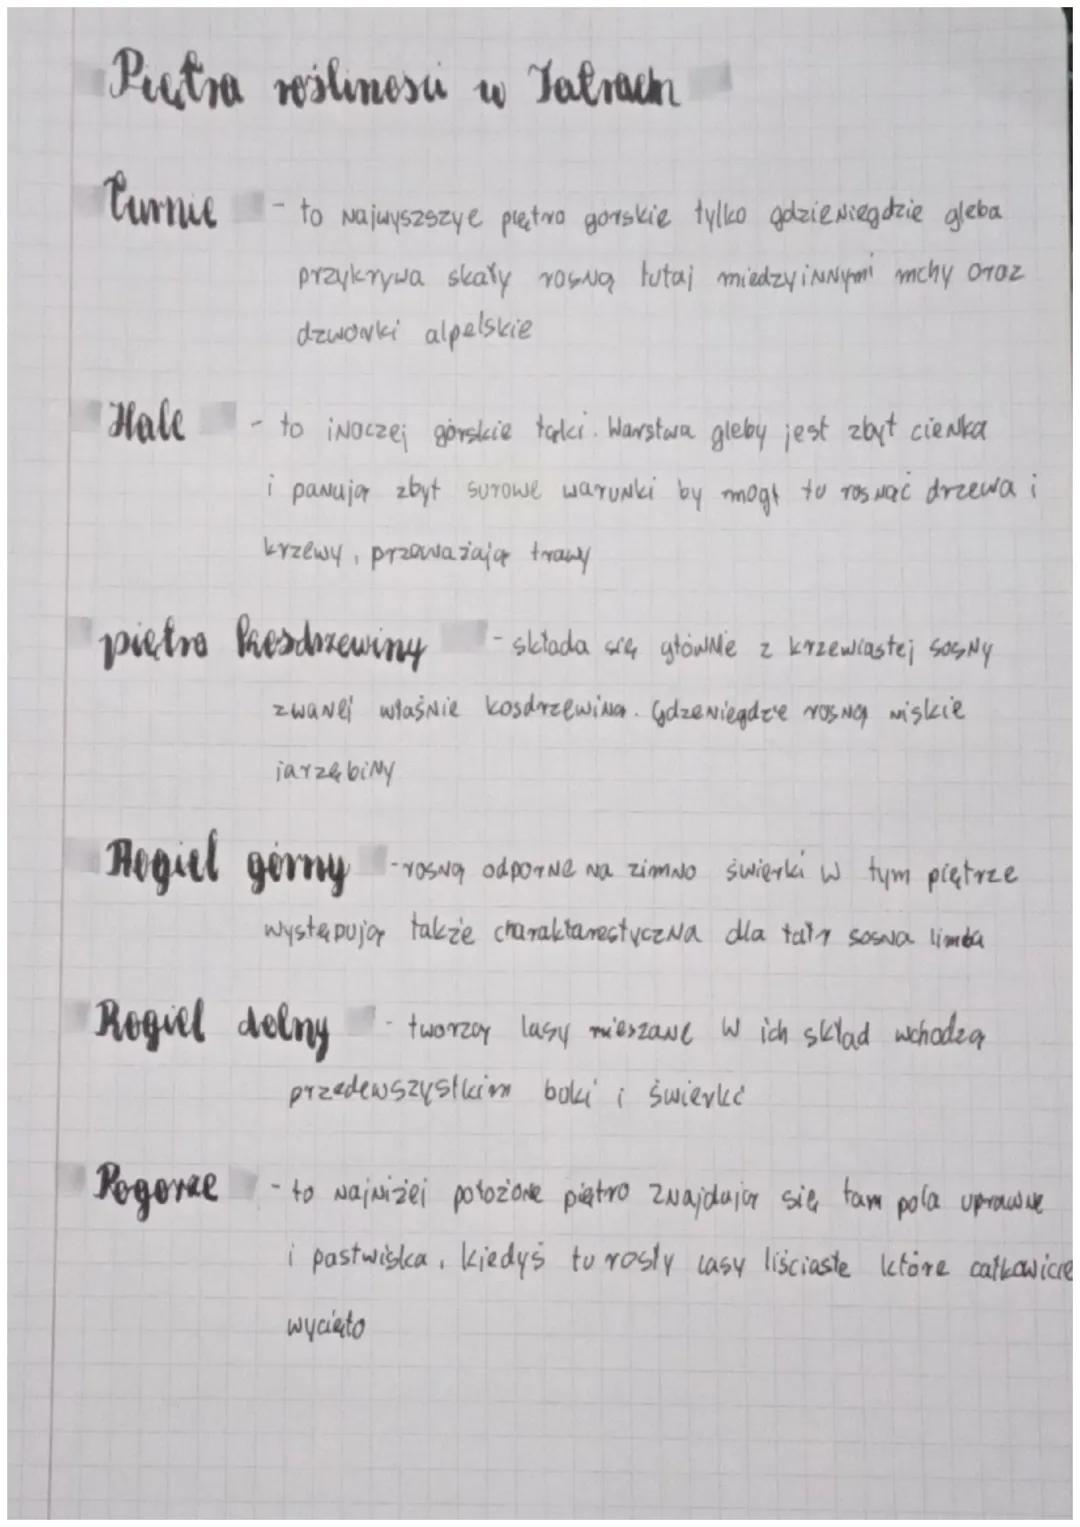 Piętra rośliności w Tatrach
Turnie - to najwyszszye piętro górskie tylko gdzieniegdzie gleba
przykrywa skały rosną tutaj międzyinnymi mchy oraz
dzwonki alpelskie
Hale - to inaczej górskie łąki. Warstwa gleby jest zbyt cienka
i panują zbyt surowe warunki by mogł tu rosnąć drzewa i
krzewy, przeważają trawy
piętro kosdrzewiny - składa się głównie z krzewiastej sosny
zwanej właśnie kosdrzewiną. Gdzeniegdzie rosną niskie
jarzębiny
Regiel górny - rosną odporne na zimno świerki w tym piętrze
występują także charaktarestyczna dla tatr sosna limba
Regiel dolny - tworzą lasy mieszane w ich skład wchodzą
przedewszystkim buki i świerki
Pogorze - to najniżej położone piętro znajdują się tam pola uprawne
i pastwiska, kiedyś tu rosły lasy liściaste które całkowicie
wycięto